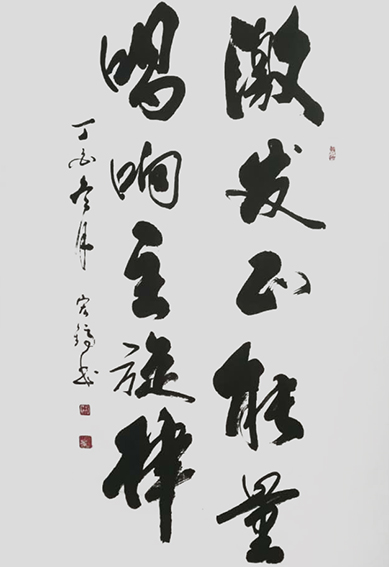 激发正能量
唱响主旋律
丁酉冬月